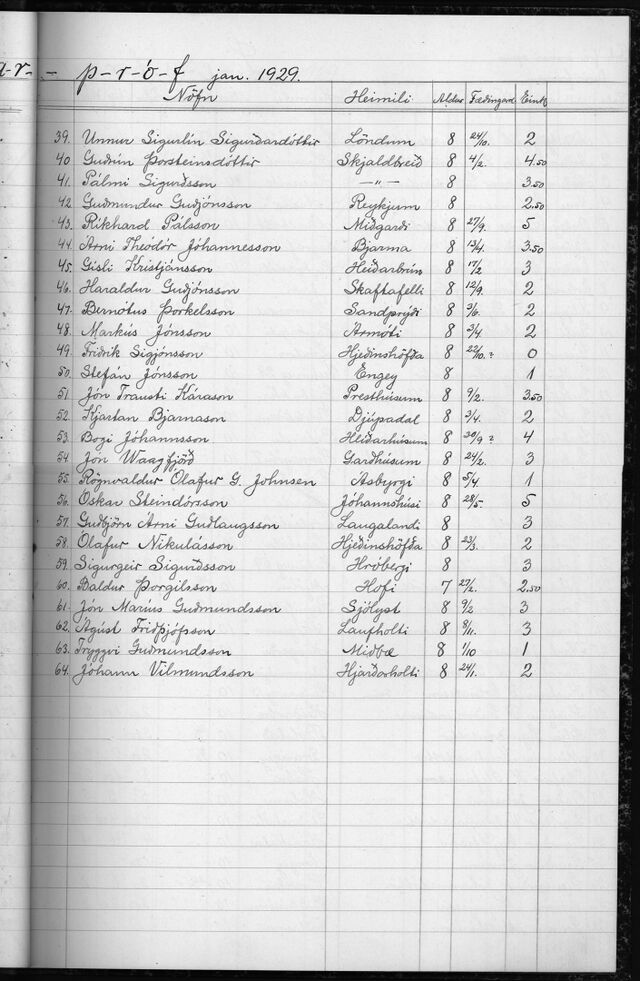 a-r- - p-r-ó-f jan. 1929.
Nöfn Heimili Aldur Fædingard Eink
39. Unnur Sigurlín Sigurðardóttir Löndum 8 24/10. 2
40 Guðrún Þorsteinsdóttir Skjaldbreið 8 4/2. 4.50
41. Pálmi Sigurðsson —"— 8 3.50
42. Guðmundur Guðjónsson Reykjum 8 2.50
43. Rikhard Pálsson Miðgarði 8 27/9. 5
44. Árni Theódór Jóhannesson Bjarma 8 13/4. 3.50
45. Gísli Kristjánsson Heiðarbrún 8 17/2 3
46. Haraldur Guðjónsson Skaftafelli 8 12/9. 2
47. Bernótus Þorkelsson Sandprýði 8 3/6. 2
48. Markús Jónsson Ármóti 8 3/4 2
49. Friðrik Sigjónsson Hjeðinshöfða 8 22/10.? 0
50. Stefán Jónsson Engey 8 1
51. Jón Trausti Kárason Presthúsum 8 9/2. 3.50
52. Kjartan Bjarnason Djúpadal 8 3/4. 2
53. Bogi Jóhannsson Heiðarhúsum 8 30/9? 4
54. Jón Waagfjörð Garðhúsum 8 24/2. 3
55. Rögnvaldur Ólafur G. Johnsen Ásbyrgi 8 5/4 1
56. Óskar Steindórsson Jóhannshúsi 8 28/5. 5
57. Guðbjörn Árni Guðlaugsson Laugalandi 8 3
58. Ólafur Nikulásson Hjeðinshöfða 8 23/3. 2
59. Sigurgeir Sigurðsson Hróbergi 8 3
60. Baldur Þorgilsson Hofi 7 27/2. 2.50
61. Jón Maríus Guðmundsson Sjólyst 8 9/2 3
62. Ágúst Friðþjófsson Laufholti 8 8/11. 3
63. Tryggvi Guðmundsson Miðbæ 8 1/10 1
64. Jóhann Vilmundsson Hjarðarholti 8 24/1. 2